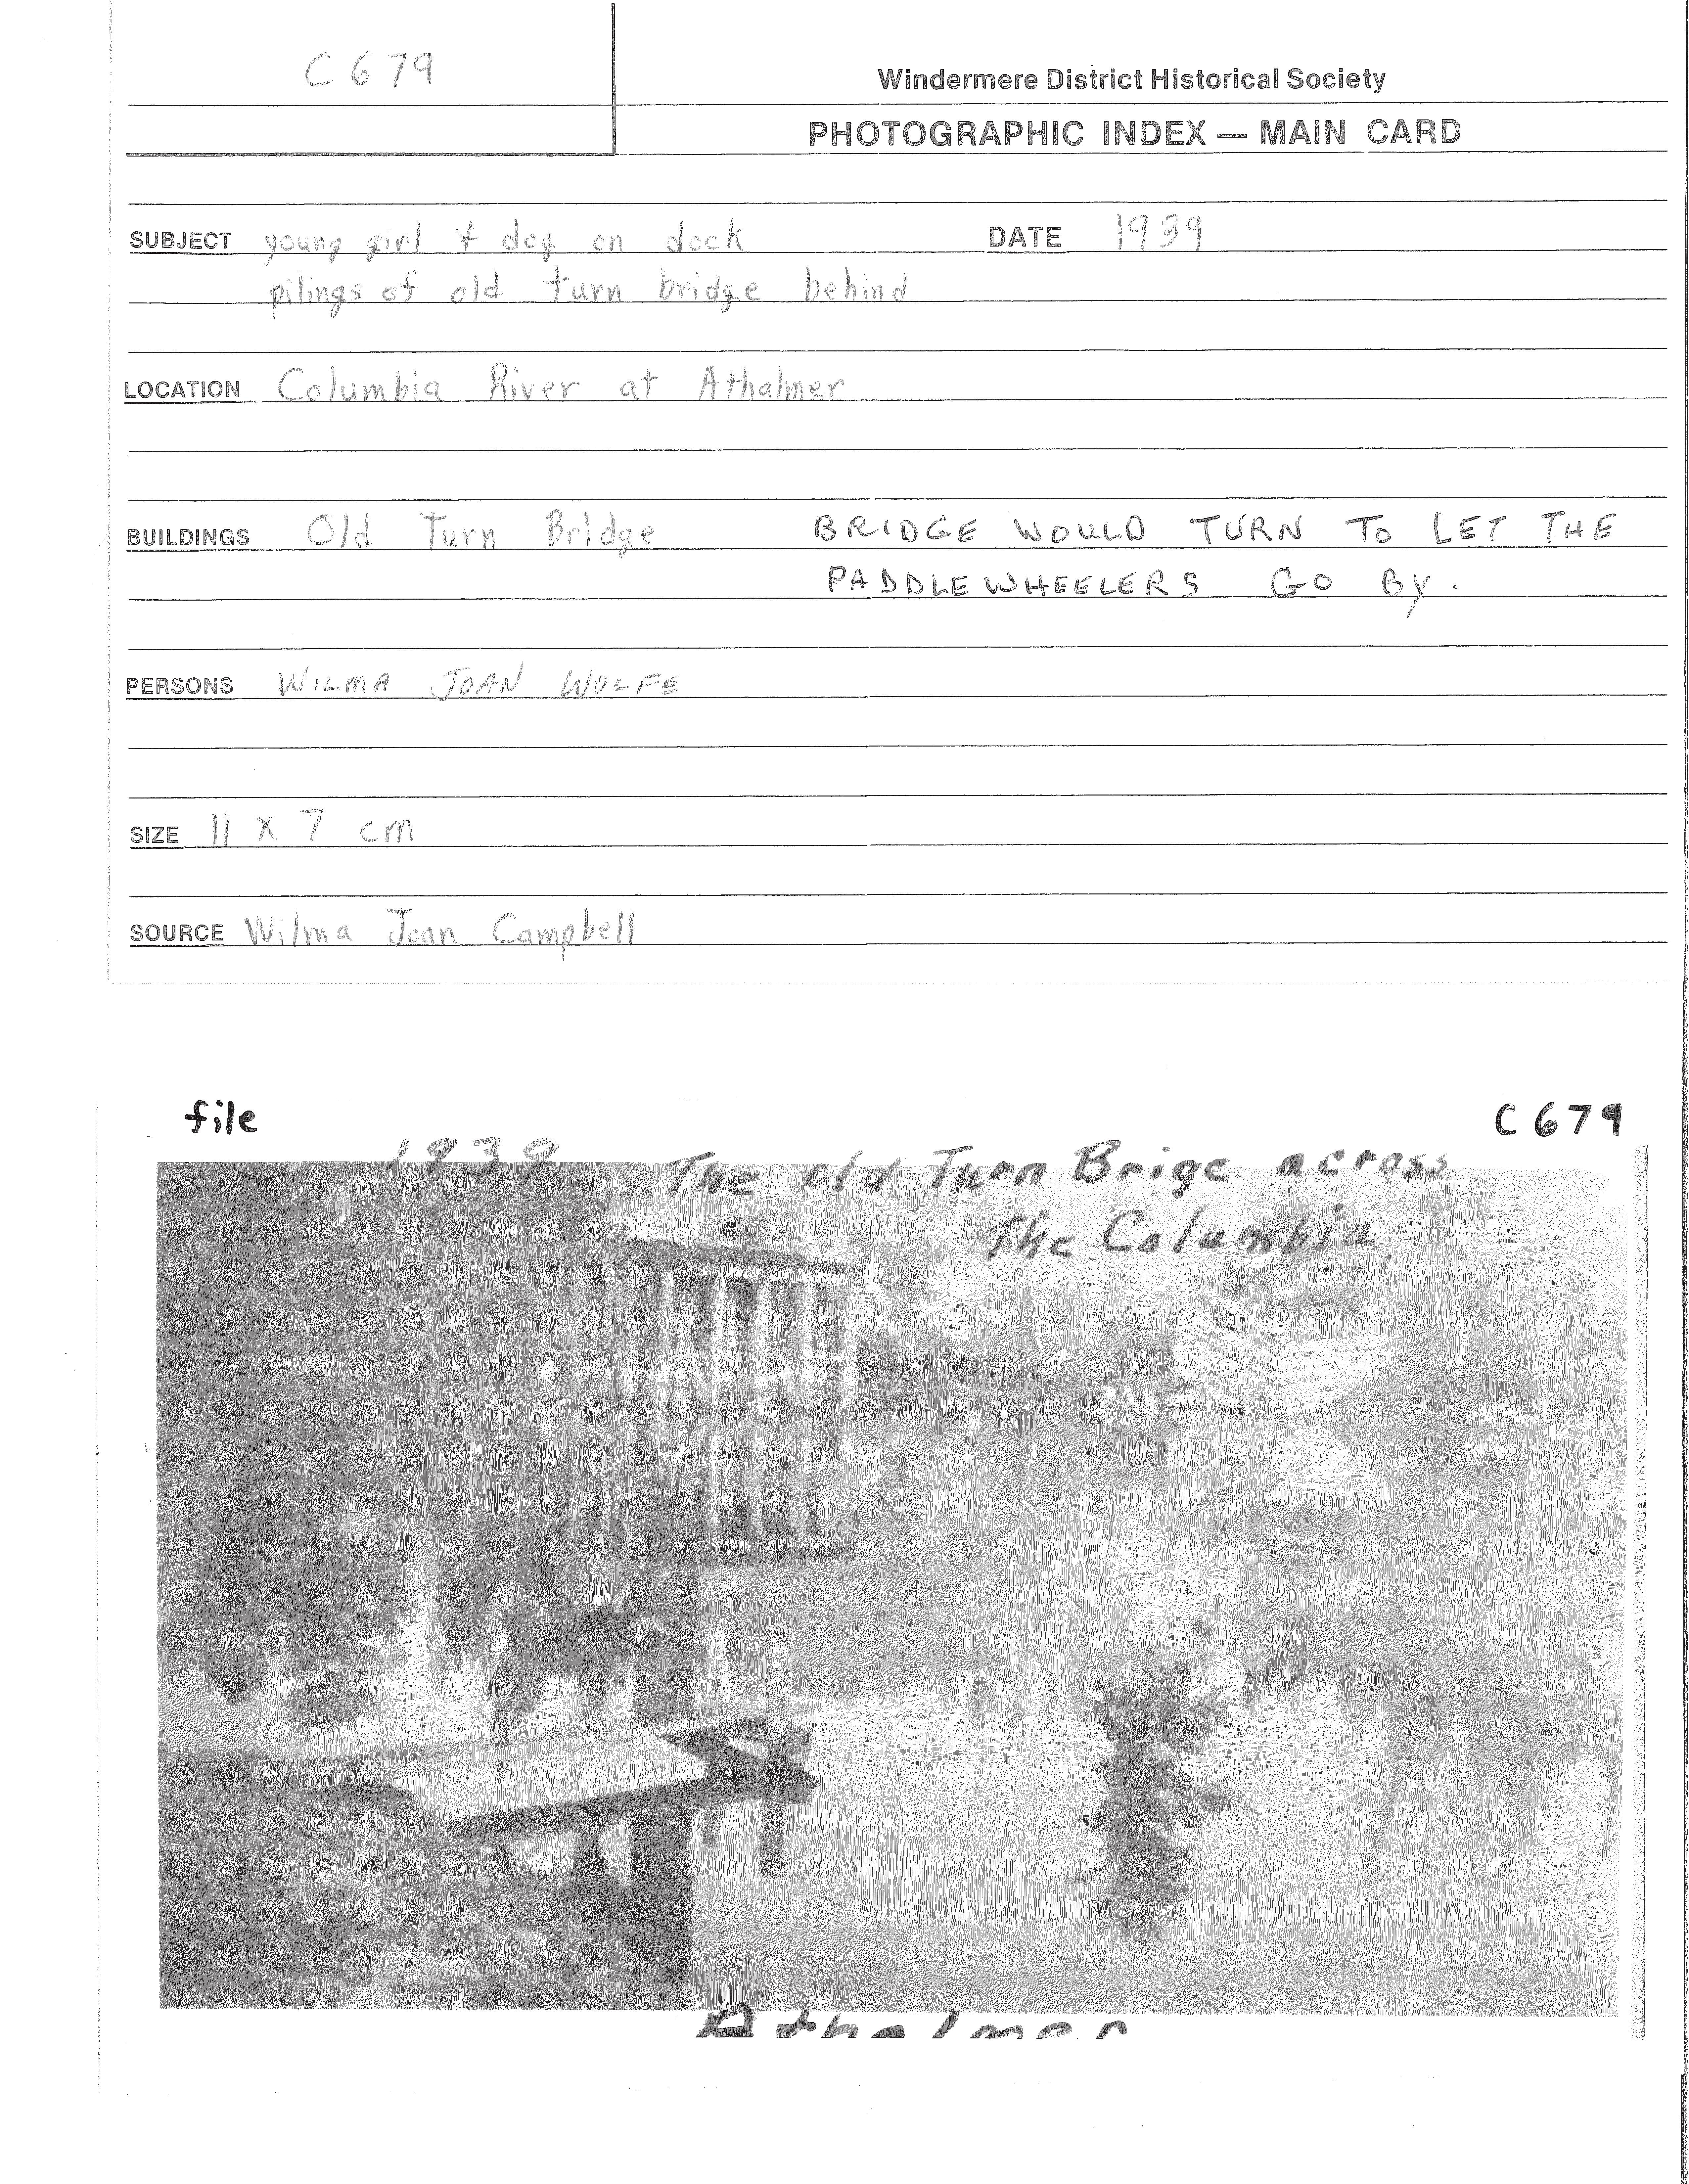 C679
Windermere District Historical Society
PHOTOGRAPHIC INDEX — MAIN CARD
SUBJECT young girl + dog on dock DATE 1939
pilings of old turn bridge behind
LOCATION Columbia River at Athalmer
BUILDINGS Old Turn Bridge BRIDGE WOULD TURN TO LET THE
PADDLEWHEELERS GO BY.
PERSONS WILMA JOAN WOLFE
SIZE 11 x 7 cm
SOURCE Wilma Joan Campbell
file C679
1939 The old Turn Brige across
The Columbia.
Athalmer